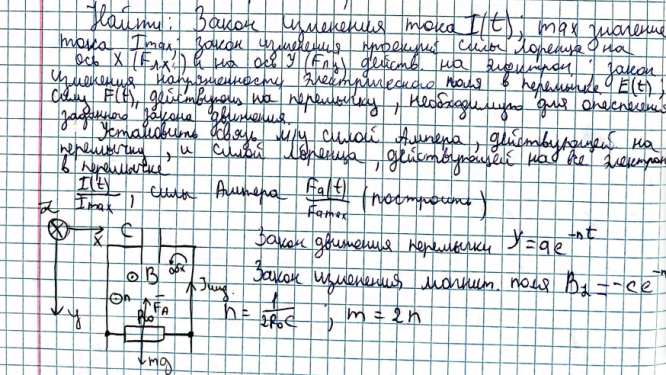 Найти: Закон изменения тока I(t); max значение
тока Imax; закон изменения проекций силы Лоренца на
ось X (Fлx) и на ось У (Fлy) действ. на электрон; закон
изменения напряженности электрического поля в перемычке E(t),
силу F(t), действующую на перемычку, необходимую для обеспечения
заданного закона движения.
Установить связь м/у силой Ампера, действующей на
перемычку, и силой Лоренца, действующей на все электроны
в перемычке
I(t)/Imax, силы Ампера Fa(t)/Famax (построить)
Z X C
Закон движения перемычки У=ae^-nt
B
Закон изменения магнит. поля Bz=-ce^-m
n Iинд.
n=1/2ρ₀C; m=2n
y ρ₀ FA
mg